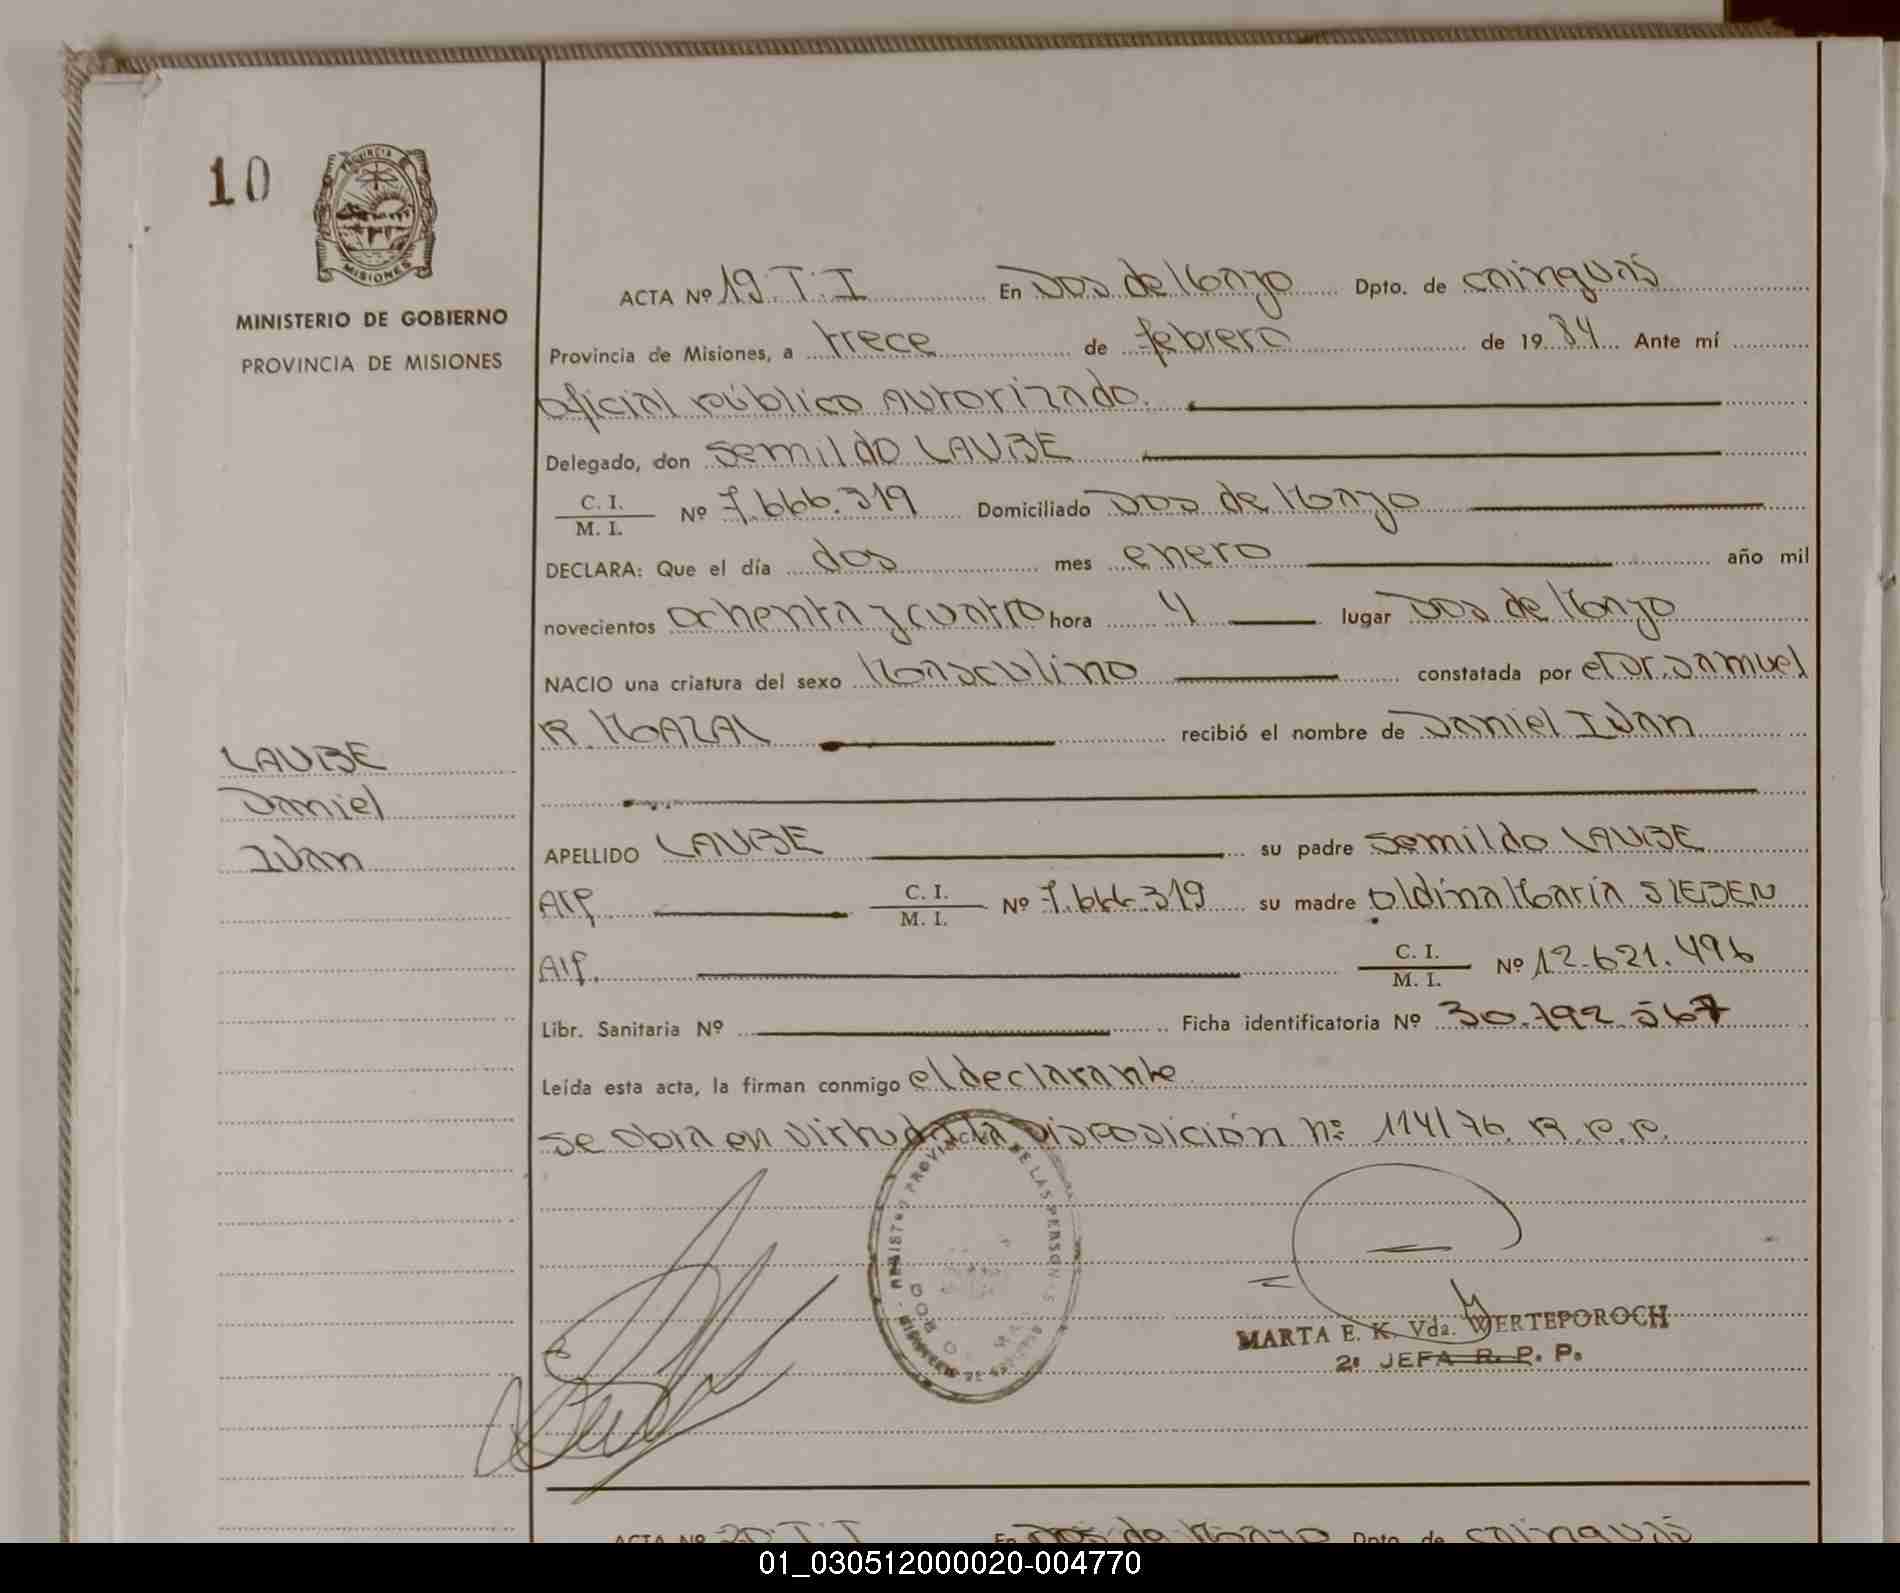 10
PROVINCIA
MISIONES
MINISTERIO DE GOBIERNO
PROVINCIA DE MISIONES
ACTA Nº 19.T.I En Dos de Mayo Dpto. de Cainguás
Provincia de Misiones, a trece de febrero de 1984 Ante mí
oficial público autorizado.
Delegado, don Semildo LAUBE
C. I.
M. I. Nº 7.666.319 Domiciliado Dos de Mayo
DECLARA: Que el día dos mes enero año mil
novecientos ochenta y cuatro hora 4 lugar Dos de Mayo
NACIO una criatura del sexo Masculino constatada por el Dr. Samuel
R. MAZAL recibió el nombre de Daniel Ivan
LAUBE
Daniel
Ivan
APELLIDO LAUBE su padre Semildo LAUBE
Arg C. I.
M. I. Nº 7.666.319 su madre Oldina María SIEBEN
Arg. C. I.
M. I. Nº 12.621.496
Libr. Sanitaria Nº Ficha identificatoria Nº 30.792.567
Leída esta acta, la firman conmigo el declarante
Se obra en virtud a la Disposición nº 114/76. R.P.P.
REGISTRO PROVINCIAL DE LAS PERSONAS
MARTA E. K. Vda. WERTEPOROCH
2º JEFA R. P. P.
ACTA Nº 20.T.I En Dos de Mayo Dpto. de Cainguás
01_030512000020-004770